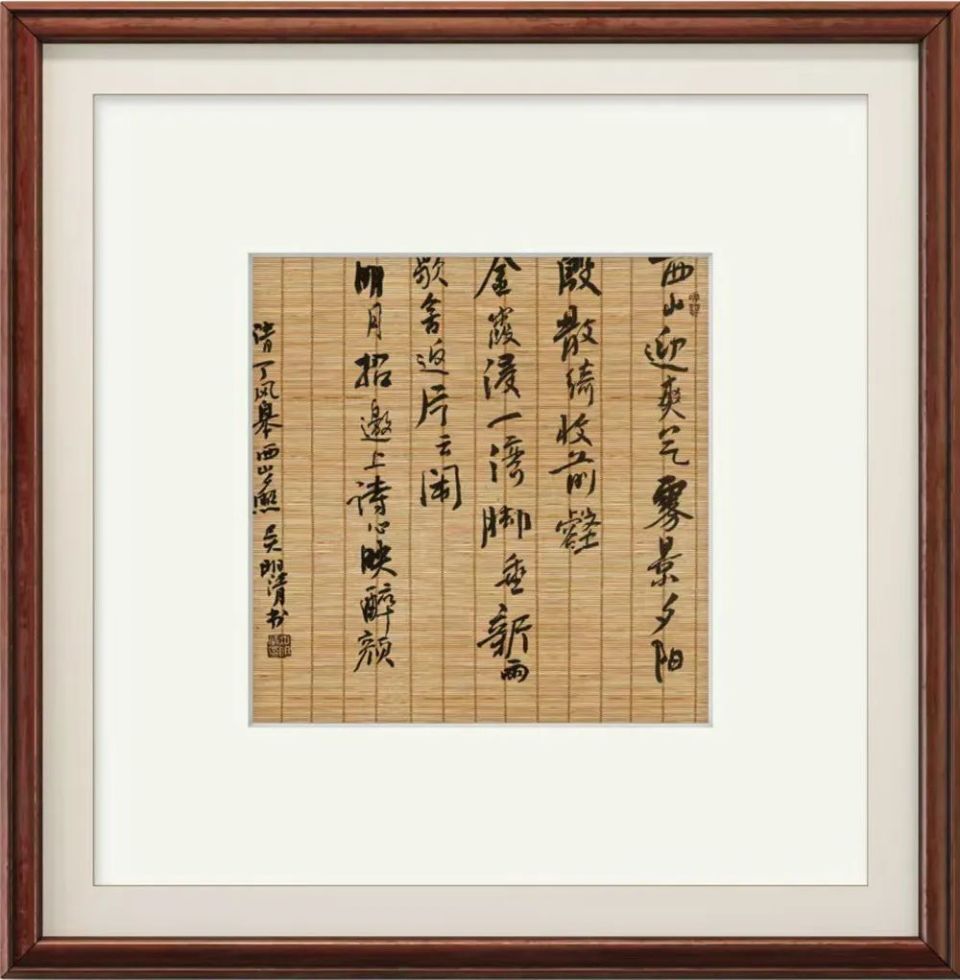 西山迎爽气霁景夕阳
殷散绮收前壑
金霞浸一湾脚垂新雨
歇舍返片云闲
明月招邀上诗心映醉颜
清丁风皋西山夕照 吴明清书